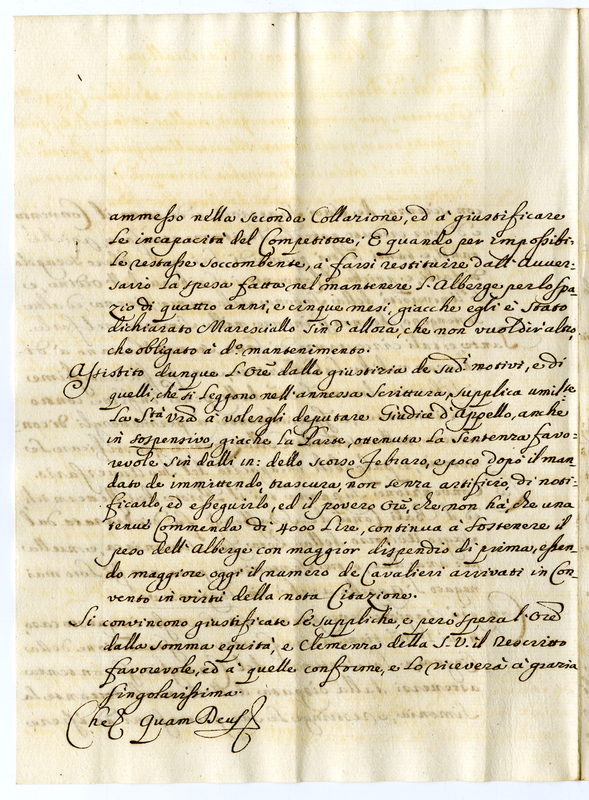 ammesso nella seconda Collazione, ed à giustificare
le incapacità del Competitore; E quando per impossibi-
le restasse soccombente, à farsi restituire dall'Avver-
sario la spesa fatta nel mantenere l'Alberge per lo spa-
zio di quattro anni, e cinque mesi, giacche egli è stato
dichiarato Maresciallo sin d'allora, che non vuol dir altro,
che obligato à do. mantenimento.
Assistito dunque l'Ore dalla giustizia de sudi. motivi, e di
quelli, che si leggono nell'annessa scrittura, supplica umilte
la Stà Vrà à volergli deputare Giudice d'Appello, anche
in sospensivo, giache la Parte, ottenuta la sentenza favo-
revole sin dalli in: dello scorso Febraro, e poco dopò il man-
dato de immittendo, trascura, non senza artificio, di noti-
ficarlo, ed esseguirlo, ed il povero Ore, che non hà, che una
tenue Commenda di 4000 Lire, continua à sostenere il
peso dell'Alberge con maggior dispendio di prima, essen-
do maggiore oggi il numero de Cavalieri arrivati in Con-
vento in virtù della nota Citazione.
Si convincono giustificate le suppliche, e però spera l'Ore
dalla somma equità, e Clemenza della S. V. il Rescritto
favorevole, ed à quelle conforme, e lo riceverà à grazia
singolarissima.
Che quam Deus